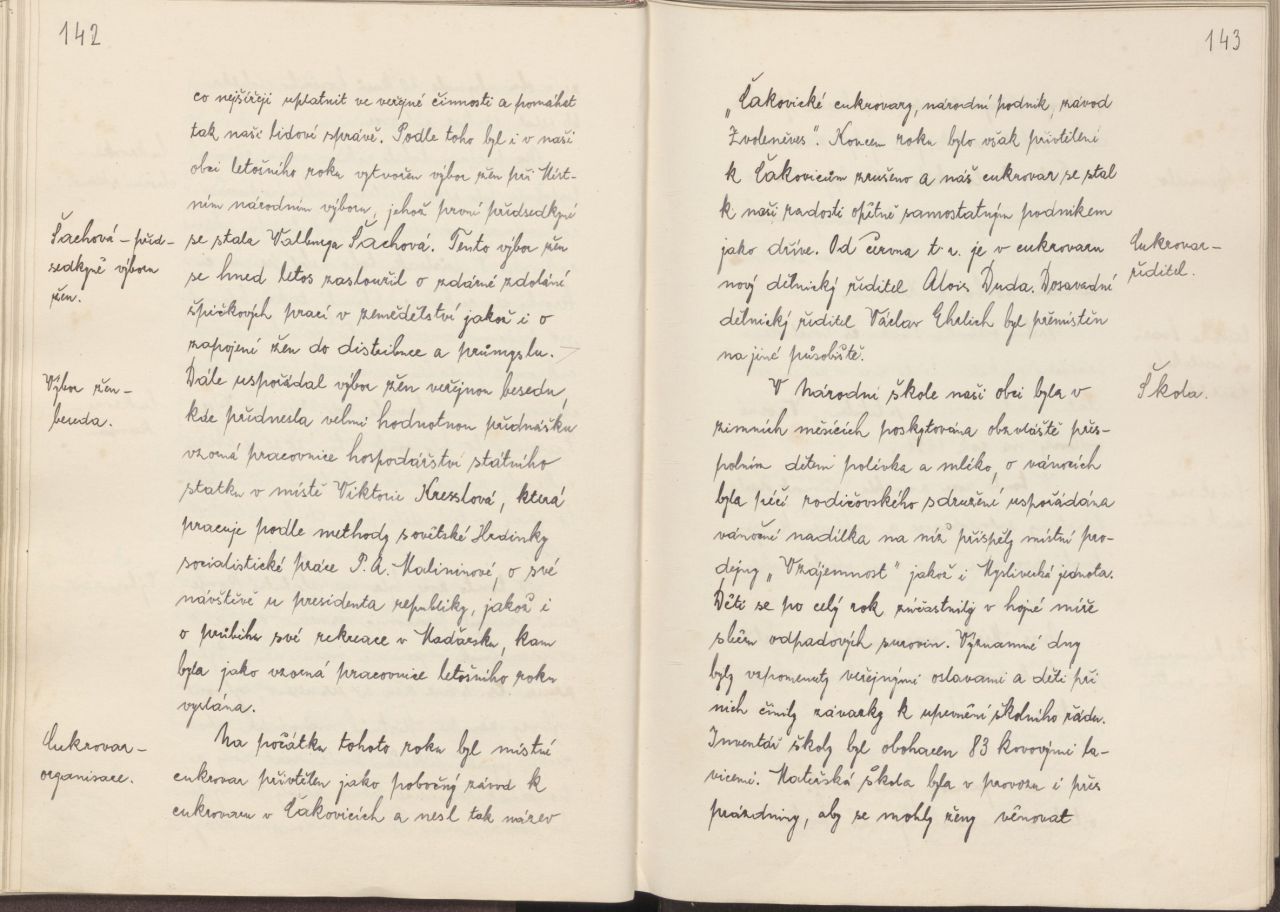 142
co nejšířeji uplatnit ve veřejné činnosti a pomáhat
tak naši lidové správě. Podle toho byl i v naší
obci letošního roku vytvořen výbor žen při Míst-
ním národním výboru, jehož první předsedkyní
Šachová – před-
sedkyně výboru
žen.
se stala Valburga Šachová. Tento výbor žen
se hned letos zasloužil o zdárné zdolání
špičkových prací v zemědělství jakož i o
zapojení žen do distribuce a průmyslu.
Výbor žen –
beseda.
Dále uspořádal výbor žen veřejnou besedu,
kde přednesla velmi hodnotnou přednášku
vzorná pracovnice hospodářství státního
statku v místě Viktorie Kresslová, která
pracuje podle methody sovětské Hrdinky
socialistické práce P. A. Malininové, o své
návštěvě u presidenta republiky, jakož i
o průběhu své rekreace v Maďarsku, kam
byla jako vzorná pracovnice letošního roku
vyslána.
Cukrovar –
organisace.
Na počátku tohoto roku byl místní
cukrovar přivtělen jako pobočný závod k
cukrovaru v Čakovicích a nesl tak název
143
„Čakovické cukrovary, národní podnik, závod
Zvoleněves". Koncem roku bylo však přivtělení
k Čakovicům zrušeno a náš cukrovar se stal
k naší radosti opětně samostatným podnikem
Cukrovar –
ředitel.
jako dříve. Od června t. r. je v cukrovaru
nový dělnický ředitel Alois Duda. Dosavadní
dělnický ředitel Václav Ehrlich byl přemístěn
na jiné působiště.
Škola.
V národní škole naší obci byla v
zimních měsících poskytována obzvláště přes-
polním dětem polívka a mléko, o vánocích
byla péčí rodičovského sdružení uspořádána
vánoční nadílka na níž přispěly místní pro-
dejny „Vzájemnost" jakož i Myslivecká jednota.
Děti se po celý rok zúčastnily v hojné míře
sběru odpadových surovin. Významné dny
byly vzpomenuty veřejnými oslavami a děti při
nich činily závazky k upevnění školního řádu.
Inventář školy byl obohacen 83 kovovými la-
vicemi. Mateřská škola byla v provozu i přes
prázdniny, aby se mohly ženy věnovat